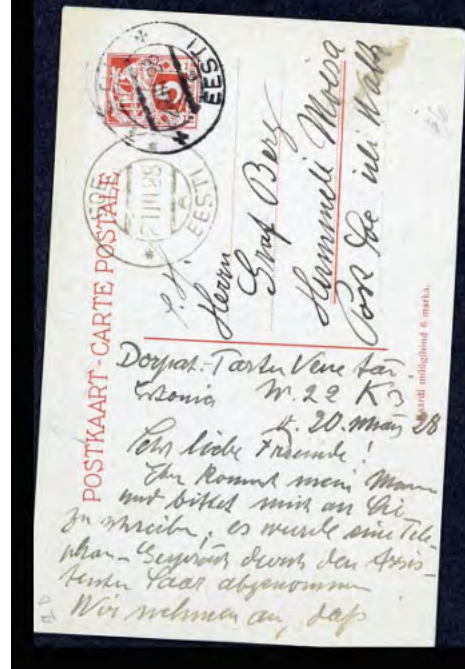 EESTI
5
SOE
21 III 28
A
EESTI
POSTKAART - CARTE POSTALE
Herrn
Graf Berg
Hummuli Moisa
Post Soe üli Walk
Kaardi müügihind 6 marka.
Dorpat-Tartu Vene tän
Estonia N. 22 K 3
d. 20. März 28
Sehr liebe Freunde!
Eben kommt mein Mann
und bittet mich an Sie
zu schreiben, es wurde eine Tele-
phon-Gespräch durch den Assis-
tenten Saar abgenommen
Wir nehmen an, daß